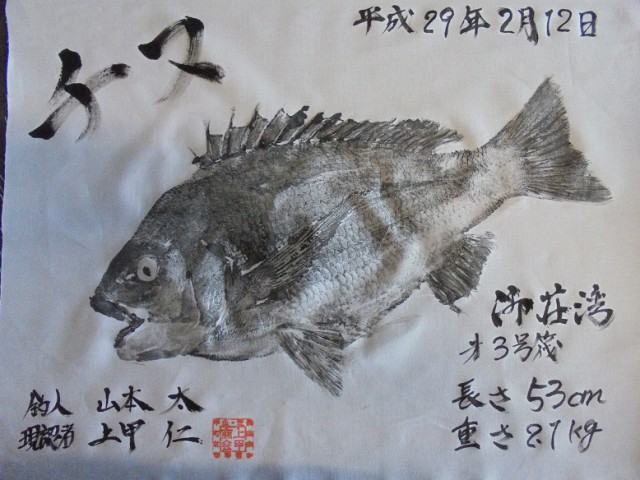 平成29年2月12日
ケヌ
御荘湾
才3号筏
長さ53cm
重さ2.7kg
釣人 山本 太
現認者 上甲 仁